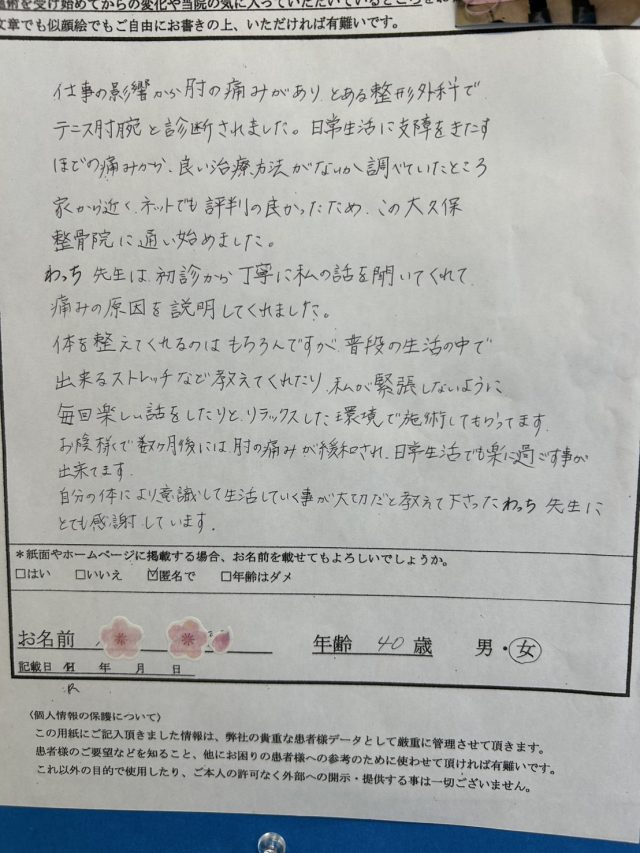 施術を受け始めてからの変化や当院の気に入っていただいているところをお
文章でも似顔絵でもご自由にお書きの上、いただければ有難いです。
仕事の影響から肘の痛みがあり、とある整形外科で
テニス肘腕と診断されました。日常生活に支障をきたす
ほどの痛みから、良い治療方法がないか調べていたところ
家から近く、ネットでも評判の良かったため、この大久保
整骨院に通い始めました。
わっち 先生は、初診から丁寧に私の話を聞いてくれて、
痛みの原因を説明してくれました。
体を整えてくれるのはもちろんですが、普段の生活の中で
出来るストレッチなど教えてくれたり、私が緊張しないように
毎回楽しい話をしたりと、リラックスした環境で施術してもらってます。
お陰様で数ヶ月後には、肘の痛みが緩和され、日常生活でも楽に過ごす事が
出来てます。
自分の体により意識して生活していく事が大切だと教えて下さった わっち 先生に
とても感謝しています。
*紙面やホームページに掲載する場合、お名前を載せてもよろしいでしょうか。
□はい □いいえ ☑匿名で □年齢はダメ
お名前 年齢 40 歳 男・女
記載日 年 月 日
R
〈個人情報の保護について〉
この用紙にご記入頂きました情報は、弊社の貴重な患者様データとして厳重に管理させて頂きます。
患者様のご要望などを知ること、他にお困りの患者様への参考のために使わせて頂ければ有難いです。
これ以外の目的で使用したり、ご本人の許可なく外部への開示・提供する事は一切ございません。